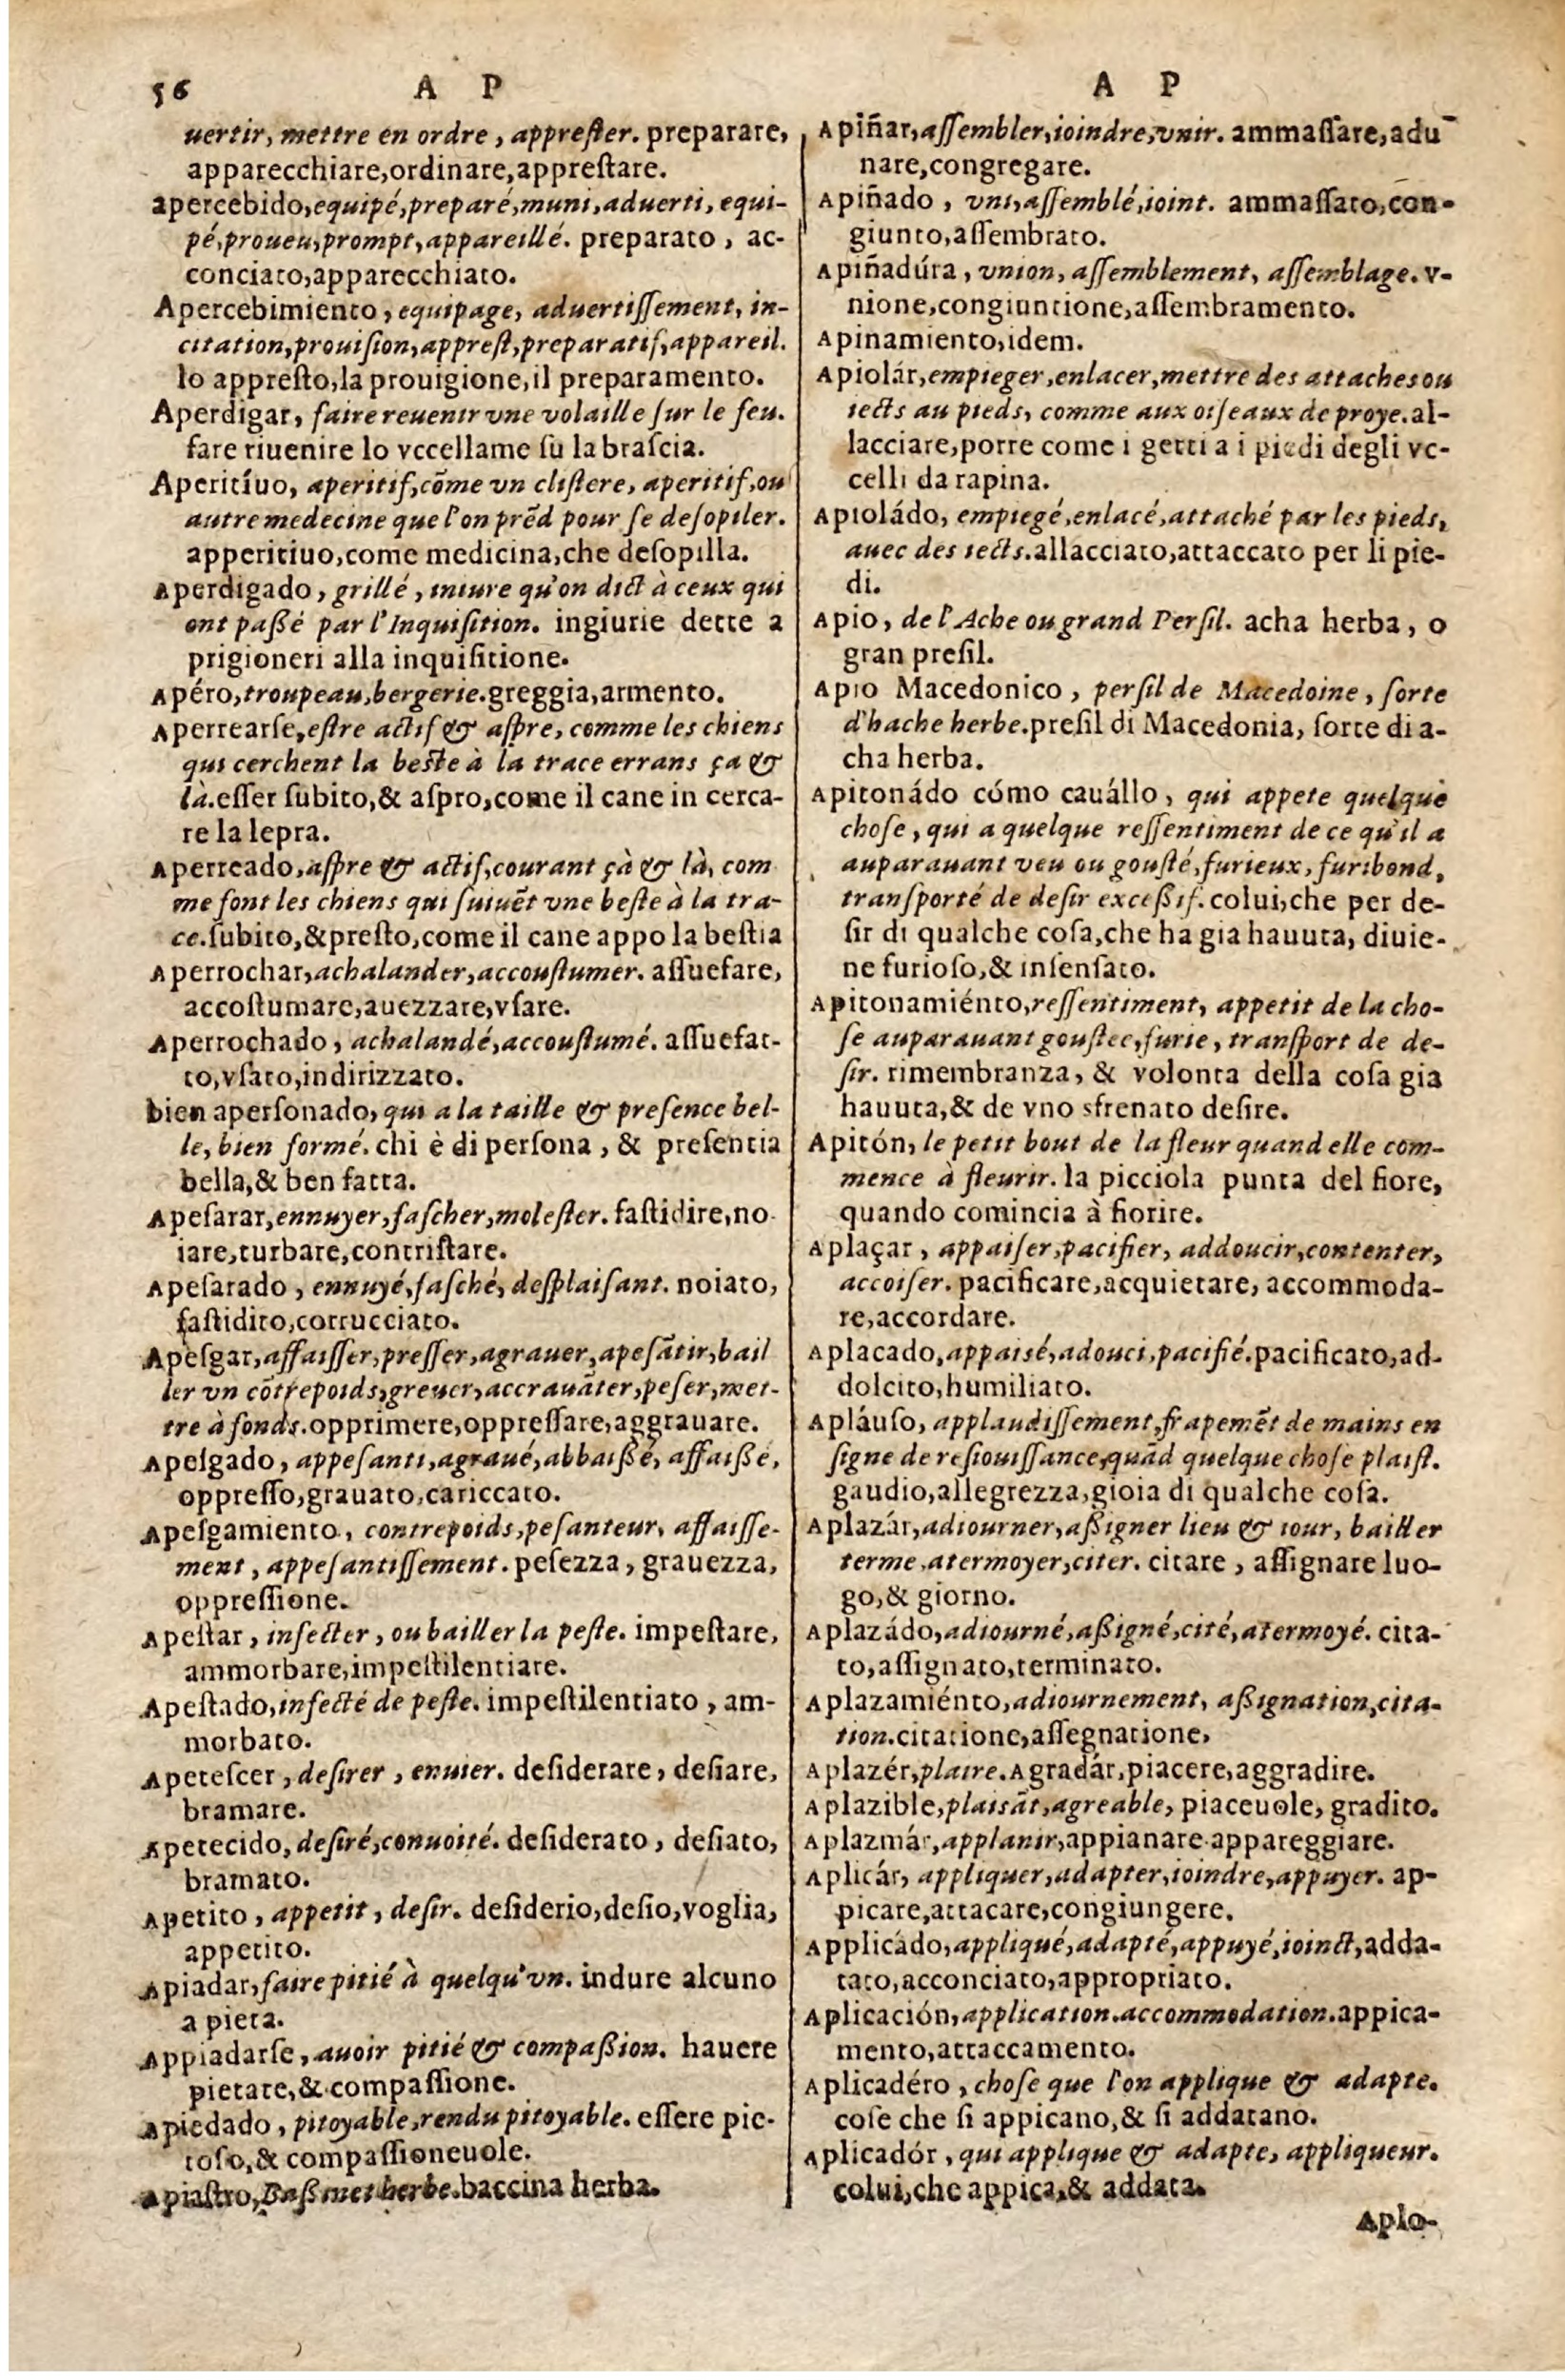 56 A P
uertir, mettre en ordre, apprester. preparare,
apparecchiare,ordinare,apprestare.
apercebido,equipé,preparé,muni,aduerti, equi-
pé,proueu,prompt,appareillé. preparato, ac-
conciato,apparecchiato.
Apercebimiento, equipage, aduertiſſement, in-
citation,prouiſion,appreſt,preparatif,appareil.
lo appreſto,la prouigione,il preparamento.
Aperdigar, faire reuenir vne volaille ſur le feu.
fare riuenire lo vccellame ſu la braſcia.
Aperitíuo, aperitif,cõme vn cliſtere, aperitif,ou
autre medecine que l'on prẽd pour ſe deſopiler.
apperitiuo,come medicina,che deſopilla.
Aperdigado, grillé, iniure qu'on dict à ceux qui
ont paßé par l'Inquiſition. ingiurie dette a
prigioneri alla inquiſitione.
Apéro,troupeau,bergerie.greggia,armento.
Aperrearſe,eſtre actif & aſpre, comme les chiens
qui cerchent la beſte à la trace errans ça &
là.eſſer ſubito,& aſpro,come il cane in cerca-
re la lepra.
Aperreado,aſpre & actif,courant çà & là, com
me font les chiens qui ſuiuẽt vne beſte à la tra-
ce.ſubito,&preſto,come il cane appo la beſtia
Aperrochar,achalander,accouſtumer. aſſuefare,
accoſtumare,auezzare,vſare.
Aperrochado, achalandé,accouſtumé. aſſuefat-
to,vſato,indirizzato.
bien aperſonado, qui a la taille & preſence bel-
le, bien formé. chi è di perſona, & preſentia
bella,& ben fatta.
Apeſarar,ennuyer,faſcher,moleſter. faſtidire,no
iare,turbare,contriſtare.
Apeſarado, ennuyé,faſché, deſplaiſant. noiato,
faſtidito,corrucciato.
Apeſgar,affaiſſer,preſſer,agrauer,apeſãtir,bail
ler vn cõtrepoids,greuer,accrauãter,peſer,met-
tre à fonds.opprimere,oppreſſare,aggrauare.
Apeſgado, appeſanti,agraué,abbaißé, affaißé,
oppreſſo,grauato,cariccato.
Apeſgamiento, contrepoids,peſanteur, affaiſſe-
ment, appeſantiſſement. peſezza, grauezza,
oppreſſione.
Apeſtar, infecter, ou bailler la peſte. impeſtare,
ammorbare,impeſtilentiare.
Apeſtado,infecté de peſte. impeſtilentiato, am-
morbato.
Apeteſcer, deſirer, enuier. deſiderare, deſiare,
bramare.
Apetecido, deſiré,conuoité. deſiderato, deſiato,
bramato.
Apetito, appetit, deſir. deſiderio,deſio,voglia,
appetito.
Apiadar,faire pitié à quelqu'vn. indure alcuno
a pieta.
Appiadarſe, auoir pitié & compaßion. hauere
pietate,& compaſſione.
Apiedado, pitoyable,rendu pitoyable. eſſere pie-
toſo,& compaſſioneuole.
Apiaſtro, Baßinet herbe.baccina herba.
A P
Apiñar,aſſembler,ioindre,vnir. ammaſſare,adu
nare,congregare.
Apiñado, vni,aſſemblé,ioint. ammaſſato,con-
giunto,aſſembrato.
Apiñadúra, vnion, aſſemblement, aſſemblage. v-
nione,congiuntione,aſſembramento.
Apinamiento,idem.
Apiolár,empieger,enlacer,mettre des attaches ou
iects au pieds, comme aux oiſeaux de proye.al-
lacciare,porre come i getti a i piedi degli vc-
celli da rapina.
Apioládo, empiegé,enlacé,attaché par les pieds,
auec des iects.allacciato,attaccato per li pie-
di.
Apio, de l'Ache ou grand Perſil. acha herba, o
gran preſil.
Apio Macedonico, perſil de Macedoine, ſorte
d'hache herbe.preſil di Macedonia, ſorte di a-
cha herba.
Apitonádo cómo cauállo, qui appete quelque
choſe, qui a quelque reſſentiment de ce qu'il a
auparauant veu ou gouſté,furieux,furibond,
tranſporté de deſir exceßif. colui,che per de-
ſir di qualche coſa,che ha gia hauuta, diuie-
ne furioſo,& inſenſato.
Apitonamiénto,reſſentiment, appetit de la cho-
ſe auparauant gouſtee,furie, tranſport de de-
ſir. rimembranza, & volonta della coſa gia
hauuta,& de vno sfrenato deſire.
Apitón, le petit bout de la fleur quand elle com-
mence à fleurir. la picciola punta del fiore,
quando comincia à fiorire.
Aplaçar, appaiſer,pacifier, addoucir,contenter,
accoiſer. pacificare,acquietare, accommoda-
re,accordare.
Aplacado,appaisé,adouci,pacifié.pacificato,ad-
dolcito,humiliato.
Apláuſo, applaudiſſement,frapemẽt de mains en
ſigne de reſiouiſſance,quãd quelque choſe plaiſt.
gaudio,allegrezza,gioia di qualche coſa.
Aplazár,adiourner,aßigner lieu & iour, bailler
terme,atermoyer,citer. citare, aſſignare luo-
go,& giorno.
Aplazádo,adiourné,aßigné,cité,atermoyé. cita-
to,aſſignato,terminato.
Aplazamiénto,adiournement, aßignation,cita-
tion.citatione,aſſegnatione,
Aplazér,plaire.Agradár,piacere,aggradire.
Aplazible,plaisãt,agreable, piaceuole, gradito.
Aplazmár,applanir,appianare.appareggiare.
Aplicár, appliquer,adapter,ioindre,appuyer. ap-
picare,attacare,congiungere.
Applicádo,appliqué,adapté,appuyé,ioinct,adda-
tato,acconciato,appropriato.
Aplicación,application.accommodation.appica-
mento,attaccamento.
Aplicadéro, choſe que l'on applique & adapte.
coſe che ſi appicano,& ſi addatano.
Aplicadór, qui applique & adapte, appliqueur.
colui,che appica,& addata.
Aplo-